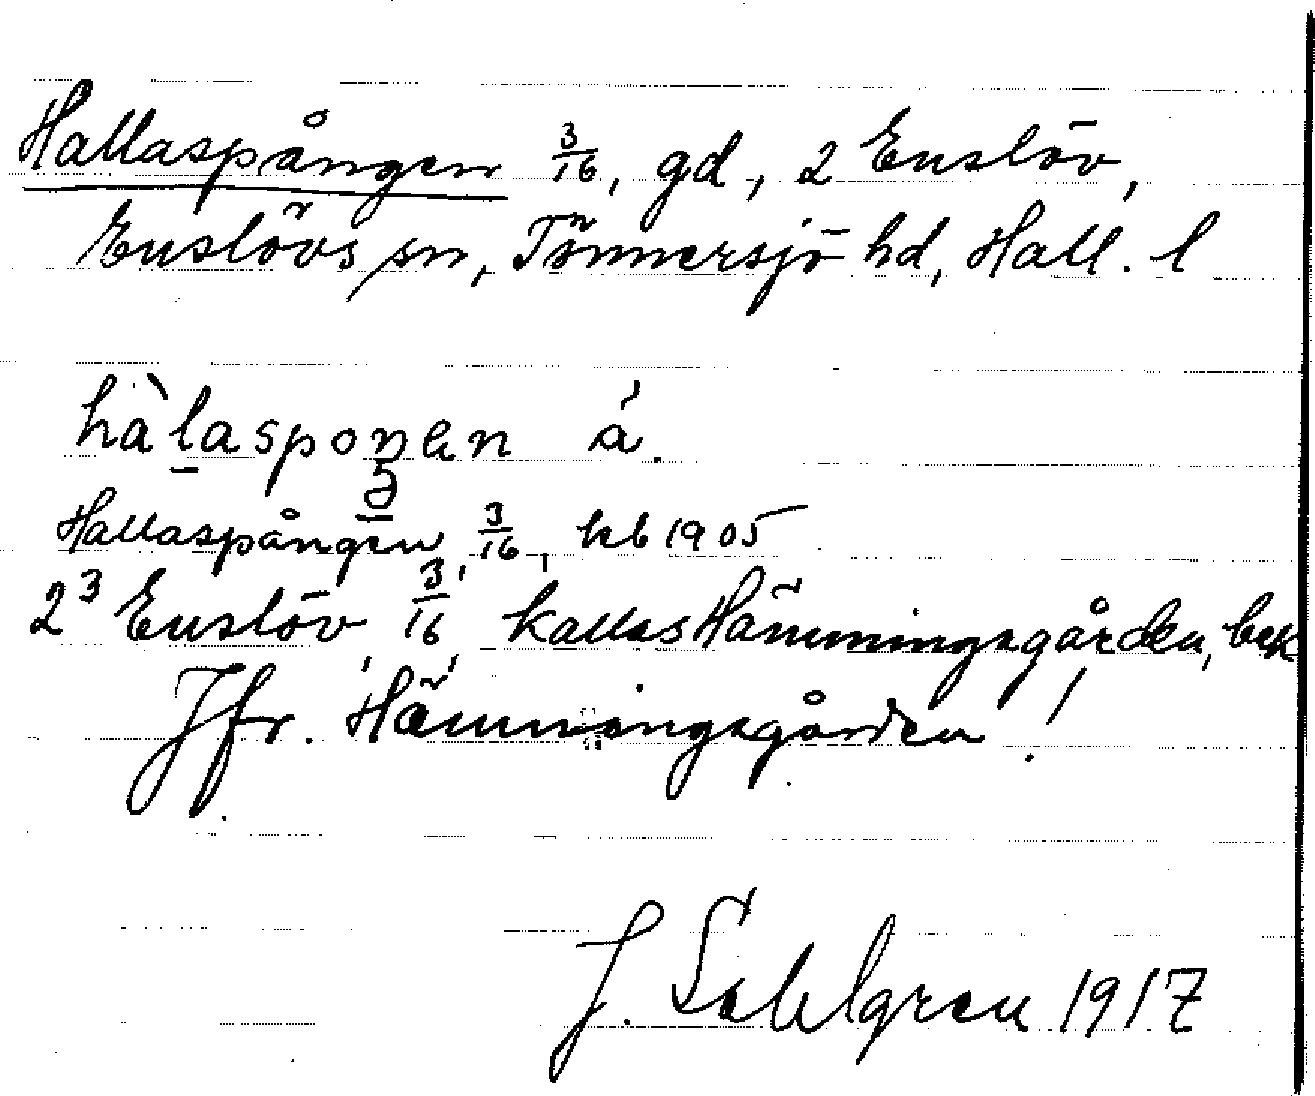 Hallaspången 3/16, gd, 2 Enslöv,
Enslövs sn, Tönnersjö hd, Hall. l
hàlasponen á.
Hallaspången, 3/16, kb 1905
2³ Enslöv, 3/16, kallas Hämmingsgården, bek
Jfr. Hämmingsgården!
J. Sahlgren 1917